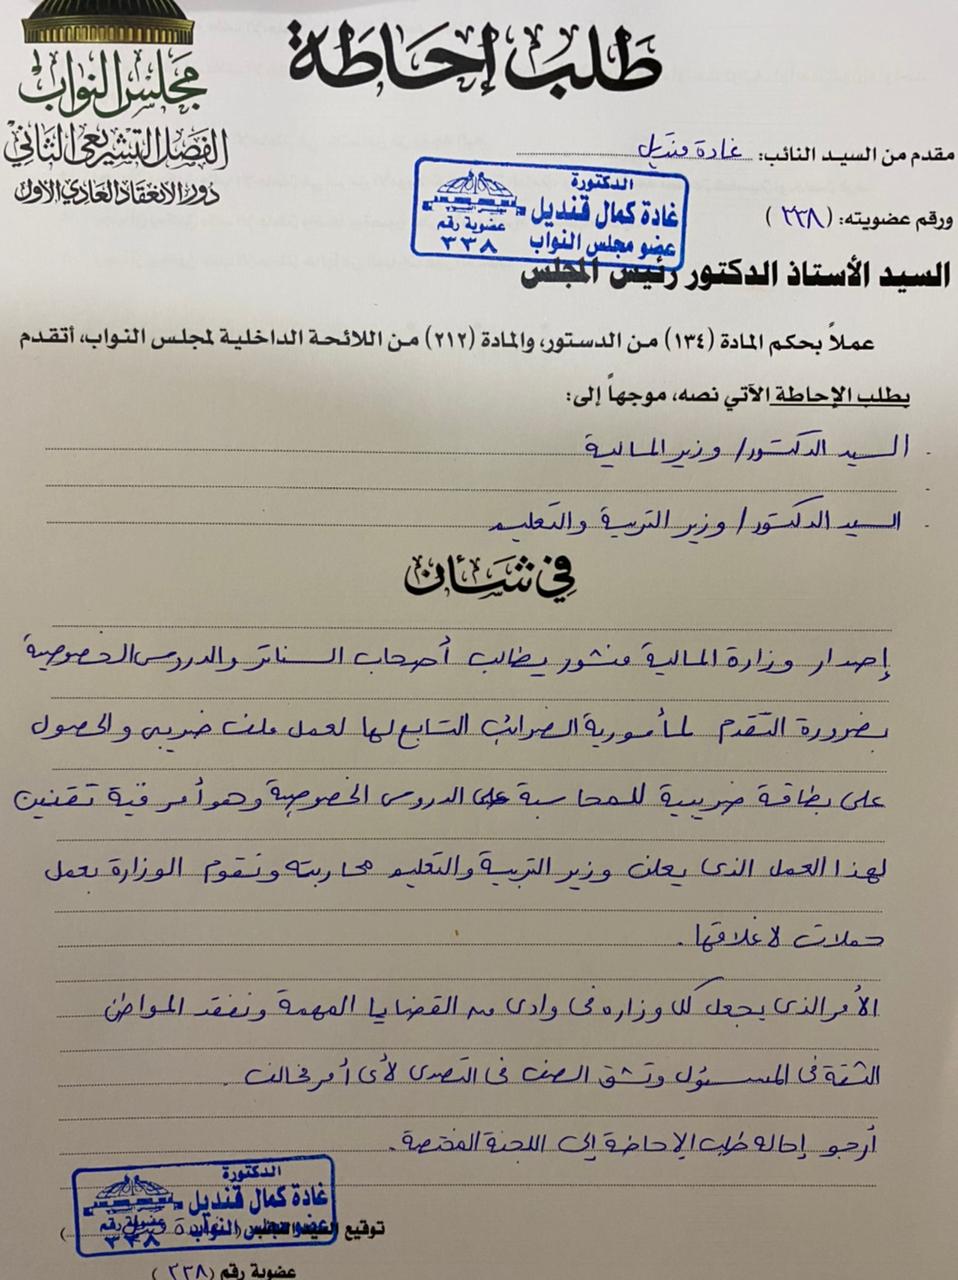 طلب إحاطة
مجلس النواب
الفصل التشريعى الثانى
دور الانعقاد العادى الأول
مقدم من السيد النائب: غادة قنديل
ورقم عضويته: (٢٣٨)
الدكتورة
غادة كمال قنديل
عضو مجلس النواب
عضوية رقم
٢٣٨
السيد الأستاذ الدكتور رئيس المجلس
عملاً بحكم المادة (١٣٤) من الدستور، والمادة (٢١٢) من اللائحة الداخلية لمجلس النواب، أتقدم
بطلب الإحاطة الآتي نصه، موجهاً إلى:
- السيد الدكتور/ وزير المالية
-
- السيد الدكتور/ وزير التربية والتعليم
في شأن
إصدار وزارة المالية منشور يطالب أصحاب السناتر والدروس الخصوصية
بضرورة التقدم لمأمورية الضرائب التابع لها لعمل ملف ضريبى والحصول
على بطاقة ضريبية للمحاسبة على الدروس الخصوصية وهو أمر فية تقنين
لهذا العمل الذى يعلن وزير التربية والتعليم محاربته وتقوم الوزارة بعمل
حملات لاغلاقها.
الأمر الذى يجعل كل وزاره فى وادى من القضايا المهمة ونفقد المواطن
الثقة فى المسئول وتشق الصف فى التصدى لأى أمر مخالف.
أرجو إحاله طلب الإحاطة إلى اللجنة المختصة.
الدكتورة
غادة كمال قنديل
عضو مجلس النواب
عضوية رقم
٢٣٨
توقيع السيد النائب (غادة قنديل)
عضوية رقم (٢٣٨)